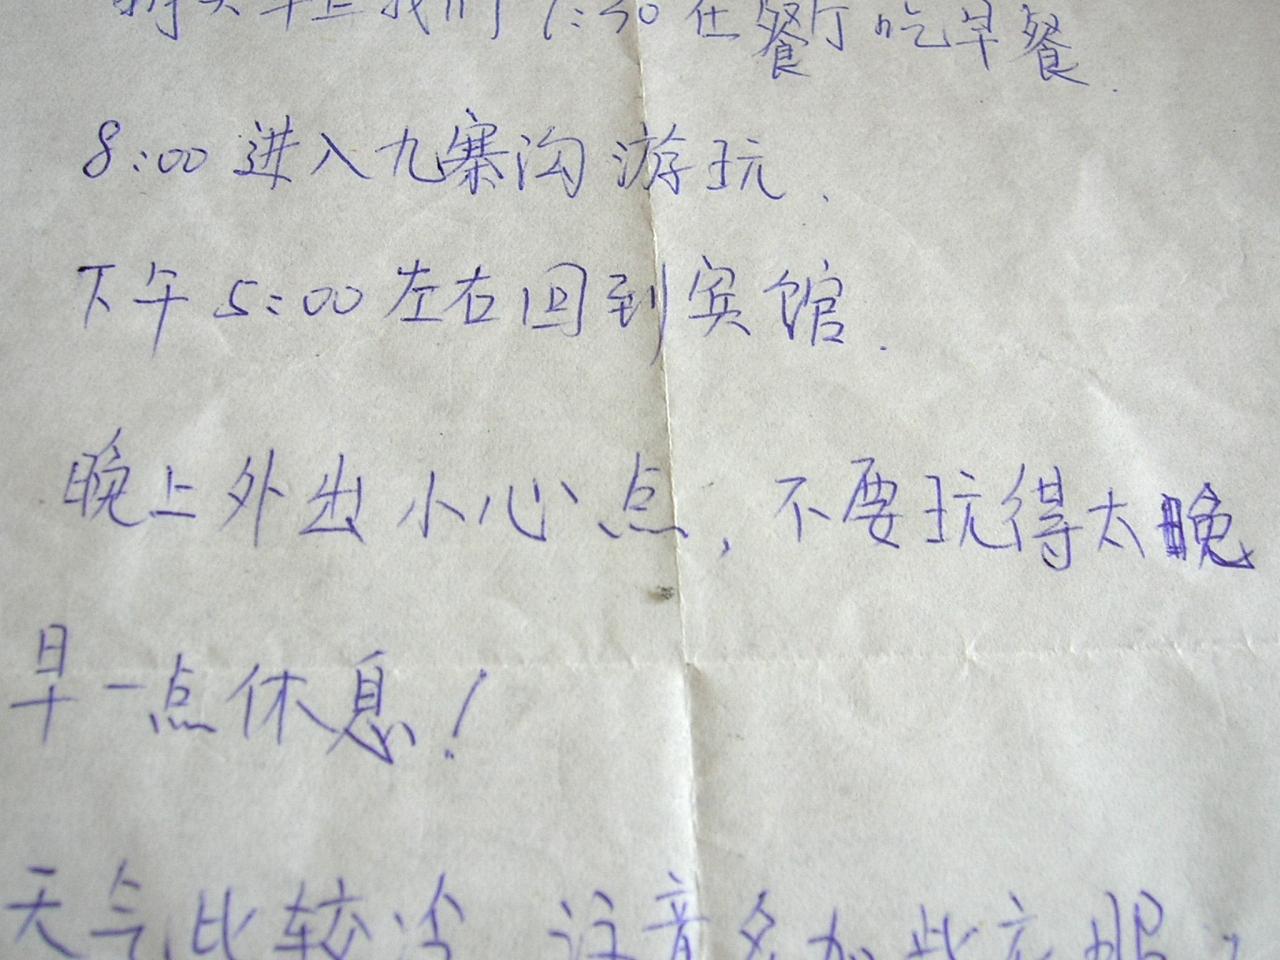 明天早上我们7:30在餐厅吃早餐.
8:00进入九寨沟游玩.
下午5:00左右回到宾馆.
晚上外出小心点,不要玩得太晚
早一点休息!
天气比较冷 注意多加些衣服